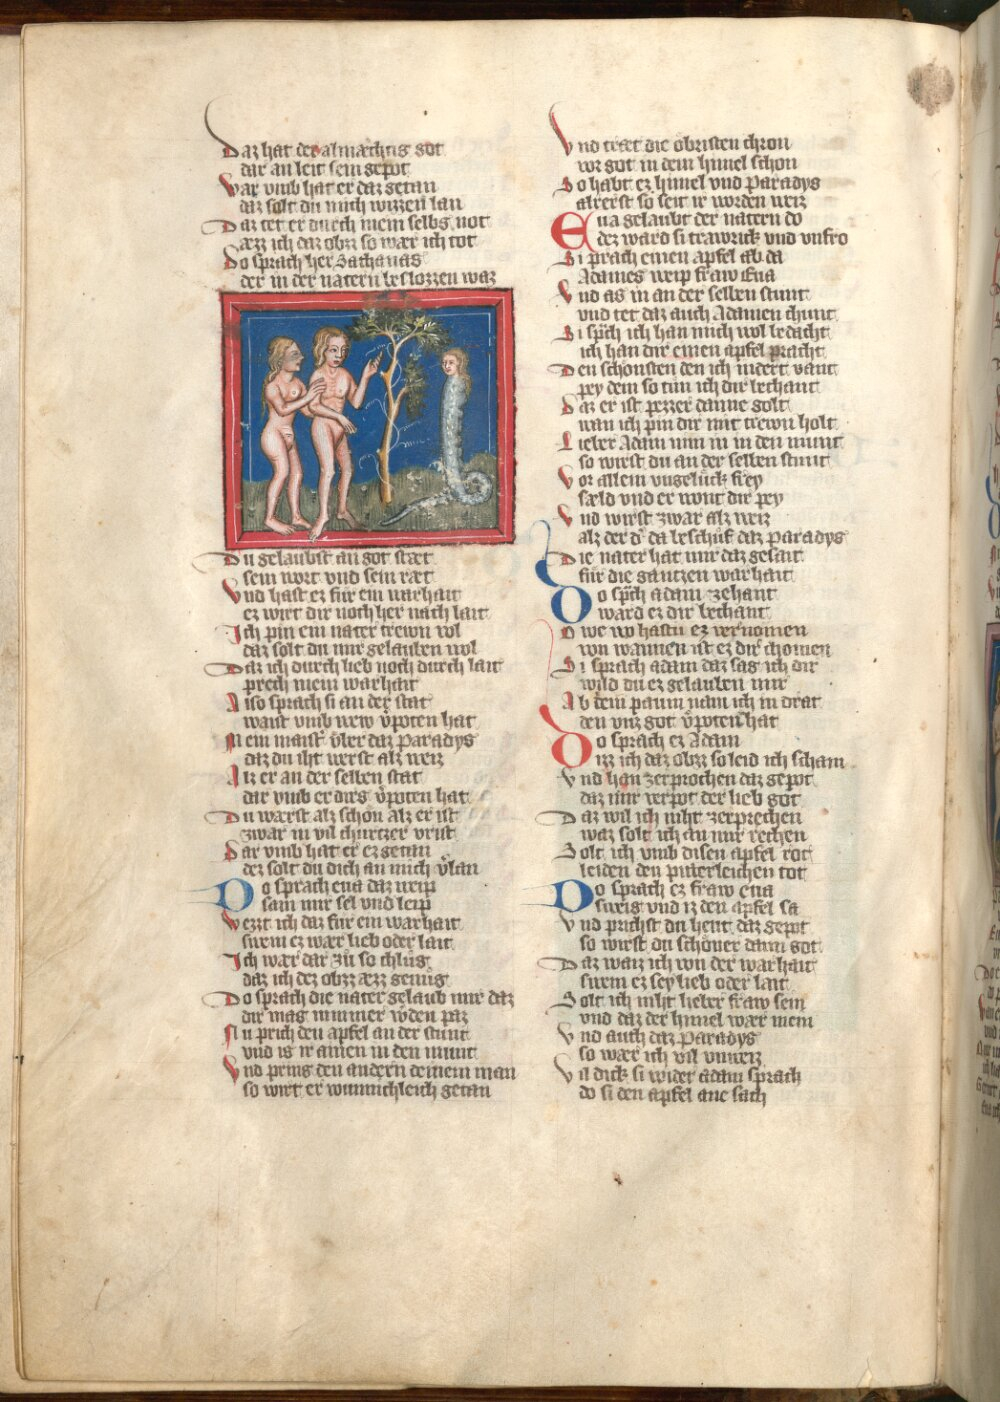 Daz hat der almæchtig got
dar an leit sein gepot
War vmb hat er daz getan
daz solt du mich wizzen lan
Daz tet er durch mein selbs not
æzz ich daz obzz so wær ich tot
Do sprach her Sathanas
der in der natern beslozzen waz
Du gelaubst an got stæt
sein wort vnd sein ræt
Vnd hast ez für ein warhait
ez wirt dir noch her nach lait
Ich pin ein nater trewn vol
daz solt du mir gelauben wol
Daz ich durch lieb noch durch lait
prech mein warhait
Also sprach si an der stat
waist vmb wew v̓poten hat
Mein maist̓ v̓ber daz Paradys
daz du iht werst alz weiz
Aiz er an der selben stat
dar vmb er dirs v̓poten hat
Du wærst alz schon alz er ist
zwar in vil churtzer vrist
Dar vmb hat er ez getan
dez solt du dich an mich v̓lan
Do sprach eua daz weip
sam mir sel vnd leip
Wezt ich daz für ein warhait
swem ez wær lieb oder lait
Ich wær dar zu so chlug
daz ich dez obzz æzz genug
Do sprach die nater gelaub mir daz
dir mag nimmer w̓den paz
Nu prich den apfel an der stunt
vnd is ir ainen in den munt
Vnd pring den andern deinem man
so wirt er wunnichleich getan
Vnd træt die obristen chron
vor got in dem himel schon
So habt ez himel vnd Paradys
alrerst so seit ir worden weiz
Eua gelaubt der natern do
dez ward si trawrick vnd vnfro
Si prach einen apfel ab da
Adames weip fraw Eua
Vnd as in an der selben stunt
vnd tet daz auch Adamen chunt
Si sp̓ch ich han mich wol bedacht
ich han dir einen apfel pracht
Den schonsten den ich indert vant
pey dem so tun ich dir bechant
Daz er ist pezzer danne golt
wan ich pin dir mit trewn holt
Lieber Adam nim in in den munt
so wirst du an der selben stunt
Vor allem vngelück frey
sæld vnd er wont dir pey
Vnd wirst zwar alz weiz
alz der d̓ da beschuf daz Paradys
Die nater hat mir daz gesait
für die gantzen warhait
Do sp̓ch adam zehant
ward ez dir bechant
Owe wo hastu ez vernomen
von wannen ist ez dir chomen
Si sprach adam daz sag ich dir
wild du ez gelauben mir
Ab dem paum nam ich in drat
den vnz got v̓poten hat
Do sprach ez Adam
Izz ich daz obzz so leid ich scham
Vnd han zerprochen daz gepot
daz mir verpot der lieb got
Daz wil ich niht zerprechen
waz solt ich an mir rechen
Solt ich vmb disen apfel rot
leiden den pitterleichen tot
Do sprach ez fraw eua
sweig vnd iz den apfel sa
Vnd prichst du heut daz gepot
so wirst du schoner dann got
Daz waiz ich von der warhait
swem ez sey lieb oder lait
Solt ich niht lieber fraw sein
vnd daz der himel wær mein
Vnd auch daz Paradys
so wær ich vil vnweiz
Vil dick si wider adam sprach
do si den apfel ane sach